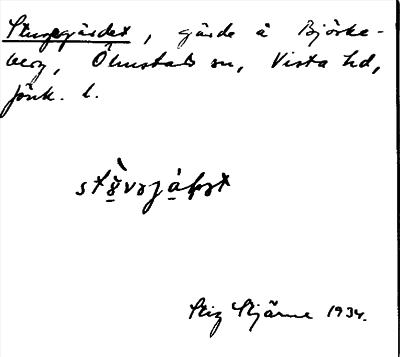 Sturegärdet, gärde å Björke-
berg, Ölmstads sn, Vista hd,
Jönk. l.
Stig Stjärne 1934.